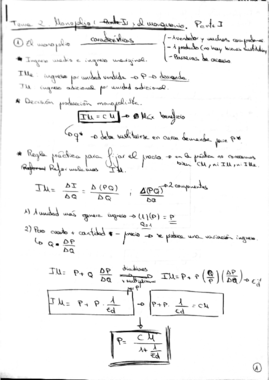 Tema 2. Monopolio: el monopsonio. Parte I
① El monopolio características → - 1 vendedor y muchos compradores
- 1 producto (no hay buenos sustitutivos)
- Barreras de acceso
* Ingreso medio e ingreso marginal.
IMe ingreso por unidad vendida → P → demanda
IM ingreso adicional por unidad adicional.
* Decisión producción monopolista.
IM = CM → Máx beneficio
Q* → debe sustituirse en curva demanda para P*
* Regla práctica para fijar el precio → en la práctica no conocemos
bien CM, ni IM, ni IMe.
Reformulamos IM.
IM = ΔI/ΔQ = Δ(PQ)/ΔQ, Δ(PQ)/ΔQ → 2 componentes
1) 1 unidad más genera ingreso → (1)(P) = P
2) Pero cuanto + cantidad - precio → se produce una variación ingreso
↳ Q · ΔP/ΔQ
IM = P + Q ΔP/ΔQ IM = P + P (Q/P) (ΔP/ΔQ) → Ed⁻¹
IM = P + P · 1/Ed → P + P · 1/Ed = CM
P = CM / 1 + 1/Ed
①